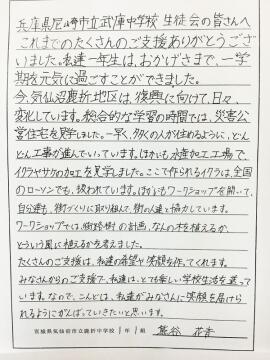 兵庫県尼崎市立武庫中学校 生徒会の皆さんへ
これまでのたくさんのご支援ありがとうござ
いました。私達一年生は、おかげさまで、一学
期を元気に過ごすことができました。
今、気仙沼鹿折地区は、復興に向けて、日々、
変化しています。総合的な学習の時間では、災害公
営住宅を見学しました。一早く、多くの人が住めるように、どん
どん工事が進んでいっています。ほかにも水産加工工場で、
イクラやサケの加工を見学しました。ここで作られるイクラは、全国
のローソンでも、扱われています。ほかにもワークショップを開いて、
自分達も、街づくりに取り組んで、街の人達と協力しています。
ワークショップでは、街路樹の計画、なんの木を植えるか、
どういう風に植えるかを考えました。
たくさんのご支援は、私達の希望と笑顔を作ってくれます。
みなさんからのご支援で、私達は、とても楽しい学校生活を送って
います。なので、こんどは、私達がみなさんに笑顔を届けら
れるようにがんばっていきたいと思います。
宮城県気仙沼市立鹿折中学校 1年1組 熊谷 花音